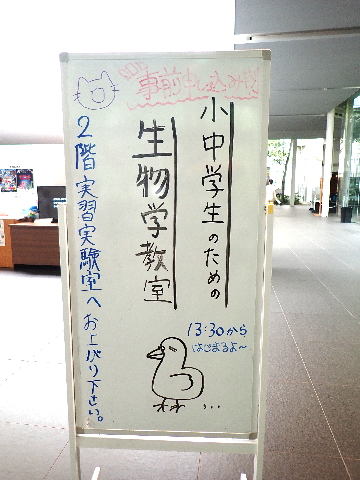 事前申し込み制
小中学生のための
生物学教室
13:30から
はじまるよ〜
2階実習実験室へお上がり下さい。